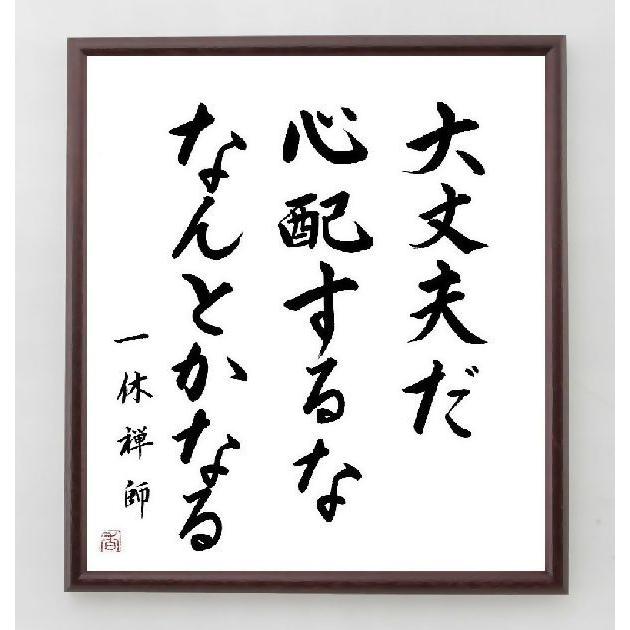 大丈夫だ
心配するな
なんとかなる
一休禅師
香